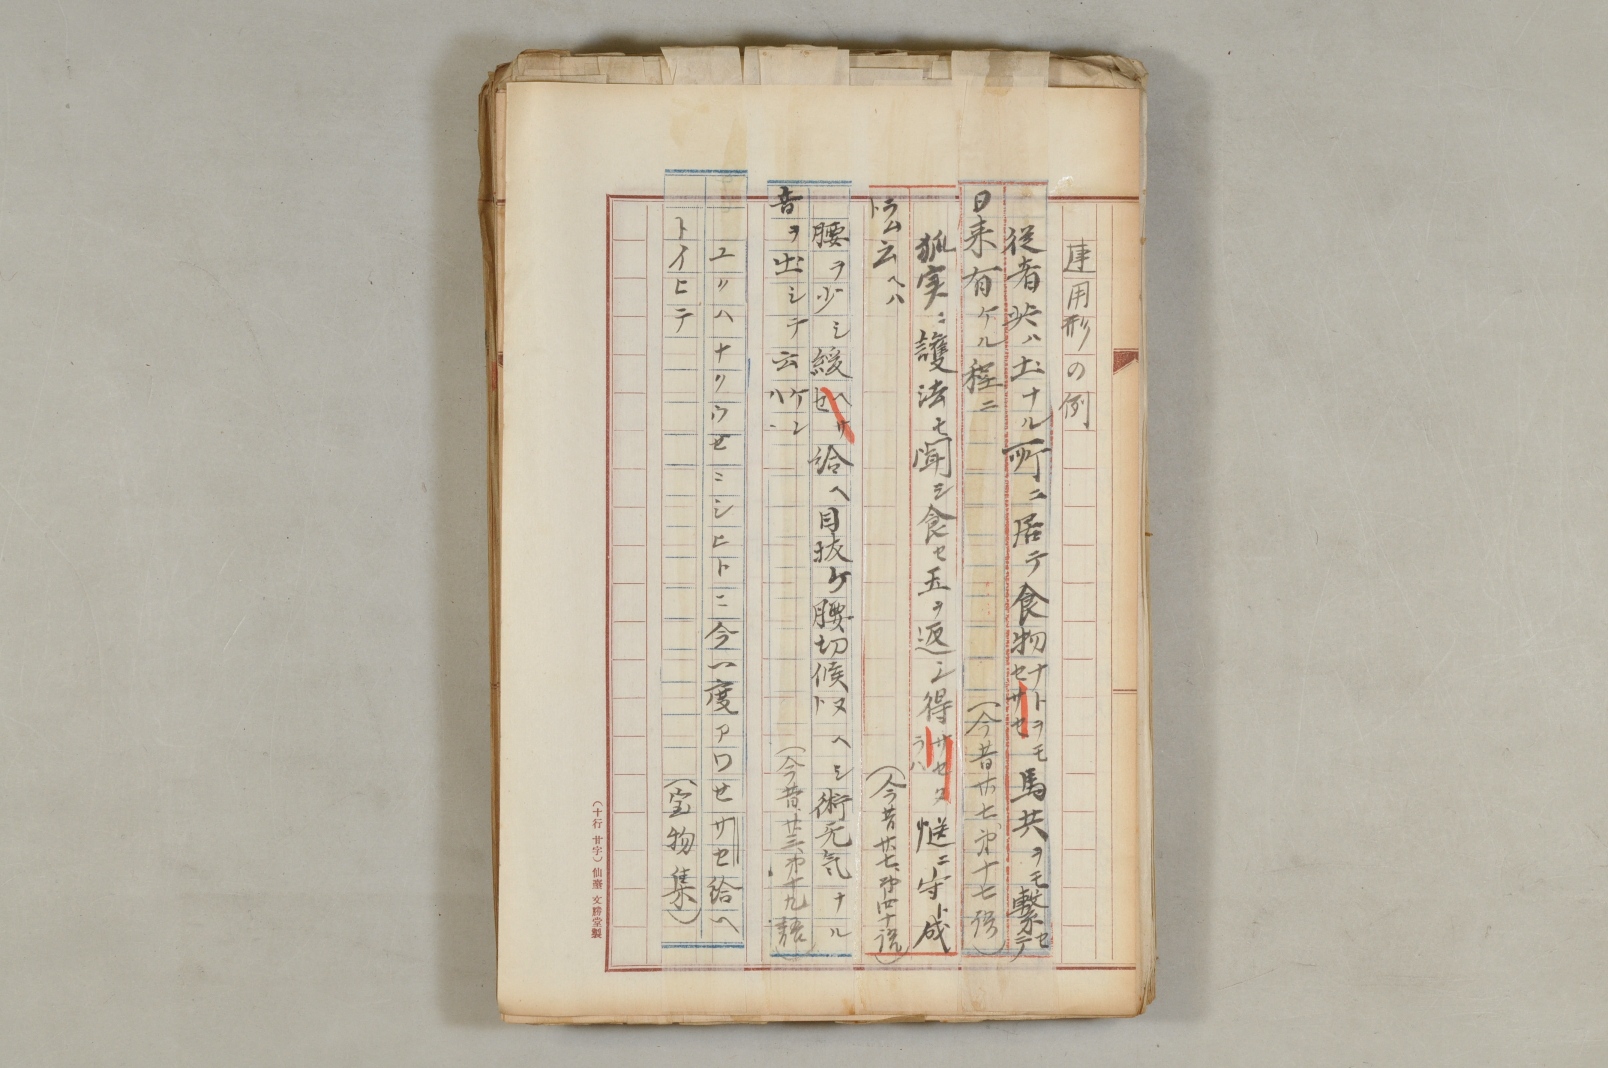 連用形の例
従者共ハ土ナル所ニ居テ食物ナトヲモセサセ馬共ヲモ繋セテ
日来有ケル程ニ
(今昔廿七、第十七語)
狐実ニ護法モ聞シ食セ玉ヲ返シ得サセタラハ ニ守ト成
ラムト云ヘハ
(今昔廿七、第四十語)
腰ヲ少シ緩ヘサセ給ヘ目抜ケ腰切候ヌヘシ術无気ナル
音ヲ出シテ云ケレハ
(今昔廿三、第十九語)
ユリハナクウセニシヒトニ今一度アワせサセ給ヘ
トイヒテ
(宝物集)
(十行 廿字) 仙臺 文勝堂製